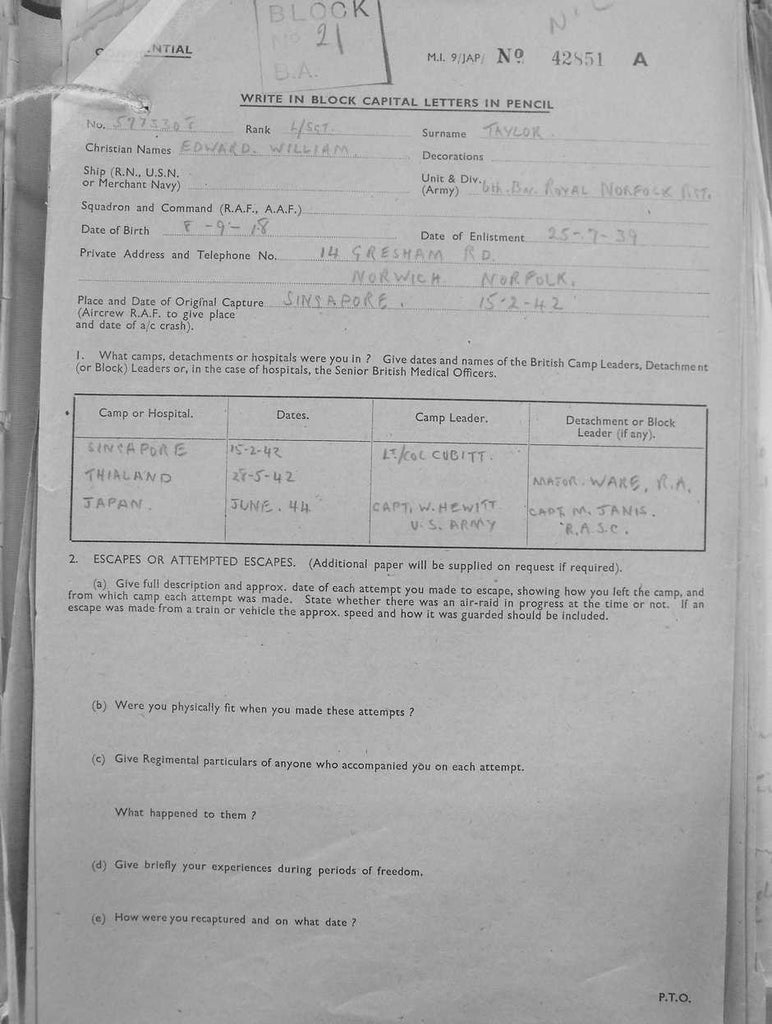 BLOCK
No 21
B.A.
NTIAL
M.I. 9/JAP/ No 42851 A
WRITE IN BLOCK CAPITAL LETTERS IN PENCIL
No. Rank L/SGT. Surname TAYLOR.
Christian Names EDWARD. WILLIAM. Decorations
Ship (R.N., U.S.N. or Merchant Navy) Unit & Div. (Army) 6th. Bn. ROYAL NORFOLK RGT.
Squadron and Command (R.A.F., A.A.F.)
Date of Birth 8-9-18 Date of Enlistment 25-7-39
Private Address and Telephone No. 14 GRESHAM RD.
NORWICH NORFOLK.
Place and Date of Original Capture SINGAPORE. 15-2-42
(Aircrew R.A.F. to give place
and date of a/c crash).
1. What camps, detachments or hospitals were you in ? Give dates and names of the British Camp Leaders, Detachment
(or Block) Leaders or, in the case of hospitals, the Senior British Medical Officers.
Camp or Hospital. Dates. Camp Leader. Detachment or Block Leader (if any).
SINGAPORE 15-2-42 LT/COL CUBITT.
THIALAND 28-5-42 MAJOR. WAKE, R.A.
JAPAN. JUNE. 44 CAPT. W. HEWITT U.S. ARMY CAPT. M. JANIS. R.A.S.C.
2. ESCAPES OR ATTEMPTED ESCAPES. (Additional paper will be supplied on request if required).
(a) Give full description and approx. date of each attempt you made to escape, showing how you left the camp, and
from which camp each attempt was made. State whether there was an air-raid in progress at the time or not. If an
escape was made from a train or vehicle the approx. speed and how it was guarded should be included.
(b) Were you physically fit when you made these attempts ?
(c) Give Regimental particulars of anyone who accompanied you on each attempt.
What happened to them ?
(d) Give briefly your experiences during periods of freedom.
(e) How were you recaptured and on what date ?
P.T.O.